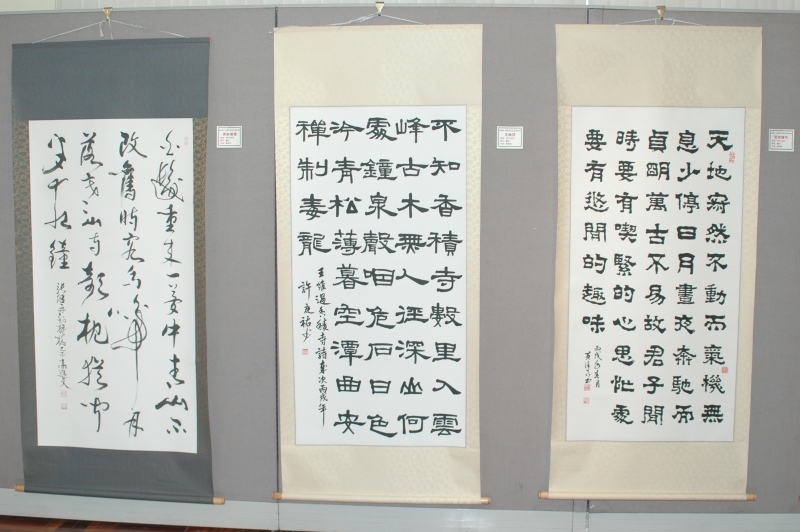 天地寂然不動而氣機無
息少停日月晝夜奔馳而
貞明萬古不易故君子閒
時要有喫緊的心思忙處
要有悠閒的趣味
不知香積寺數里入雲
峰古木無人徑深山何
處鐘泉聲咽危石日色
冷青松薄暮空潭曲安
禪制毒龍
王維過香積寺詩歲次丙戌年
白髮重來一夢中青山不
改舊時容烏啼月
落橋邊寺欹枕猶聞
半夜鐘